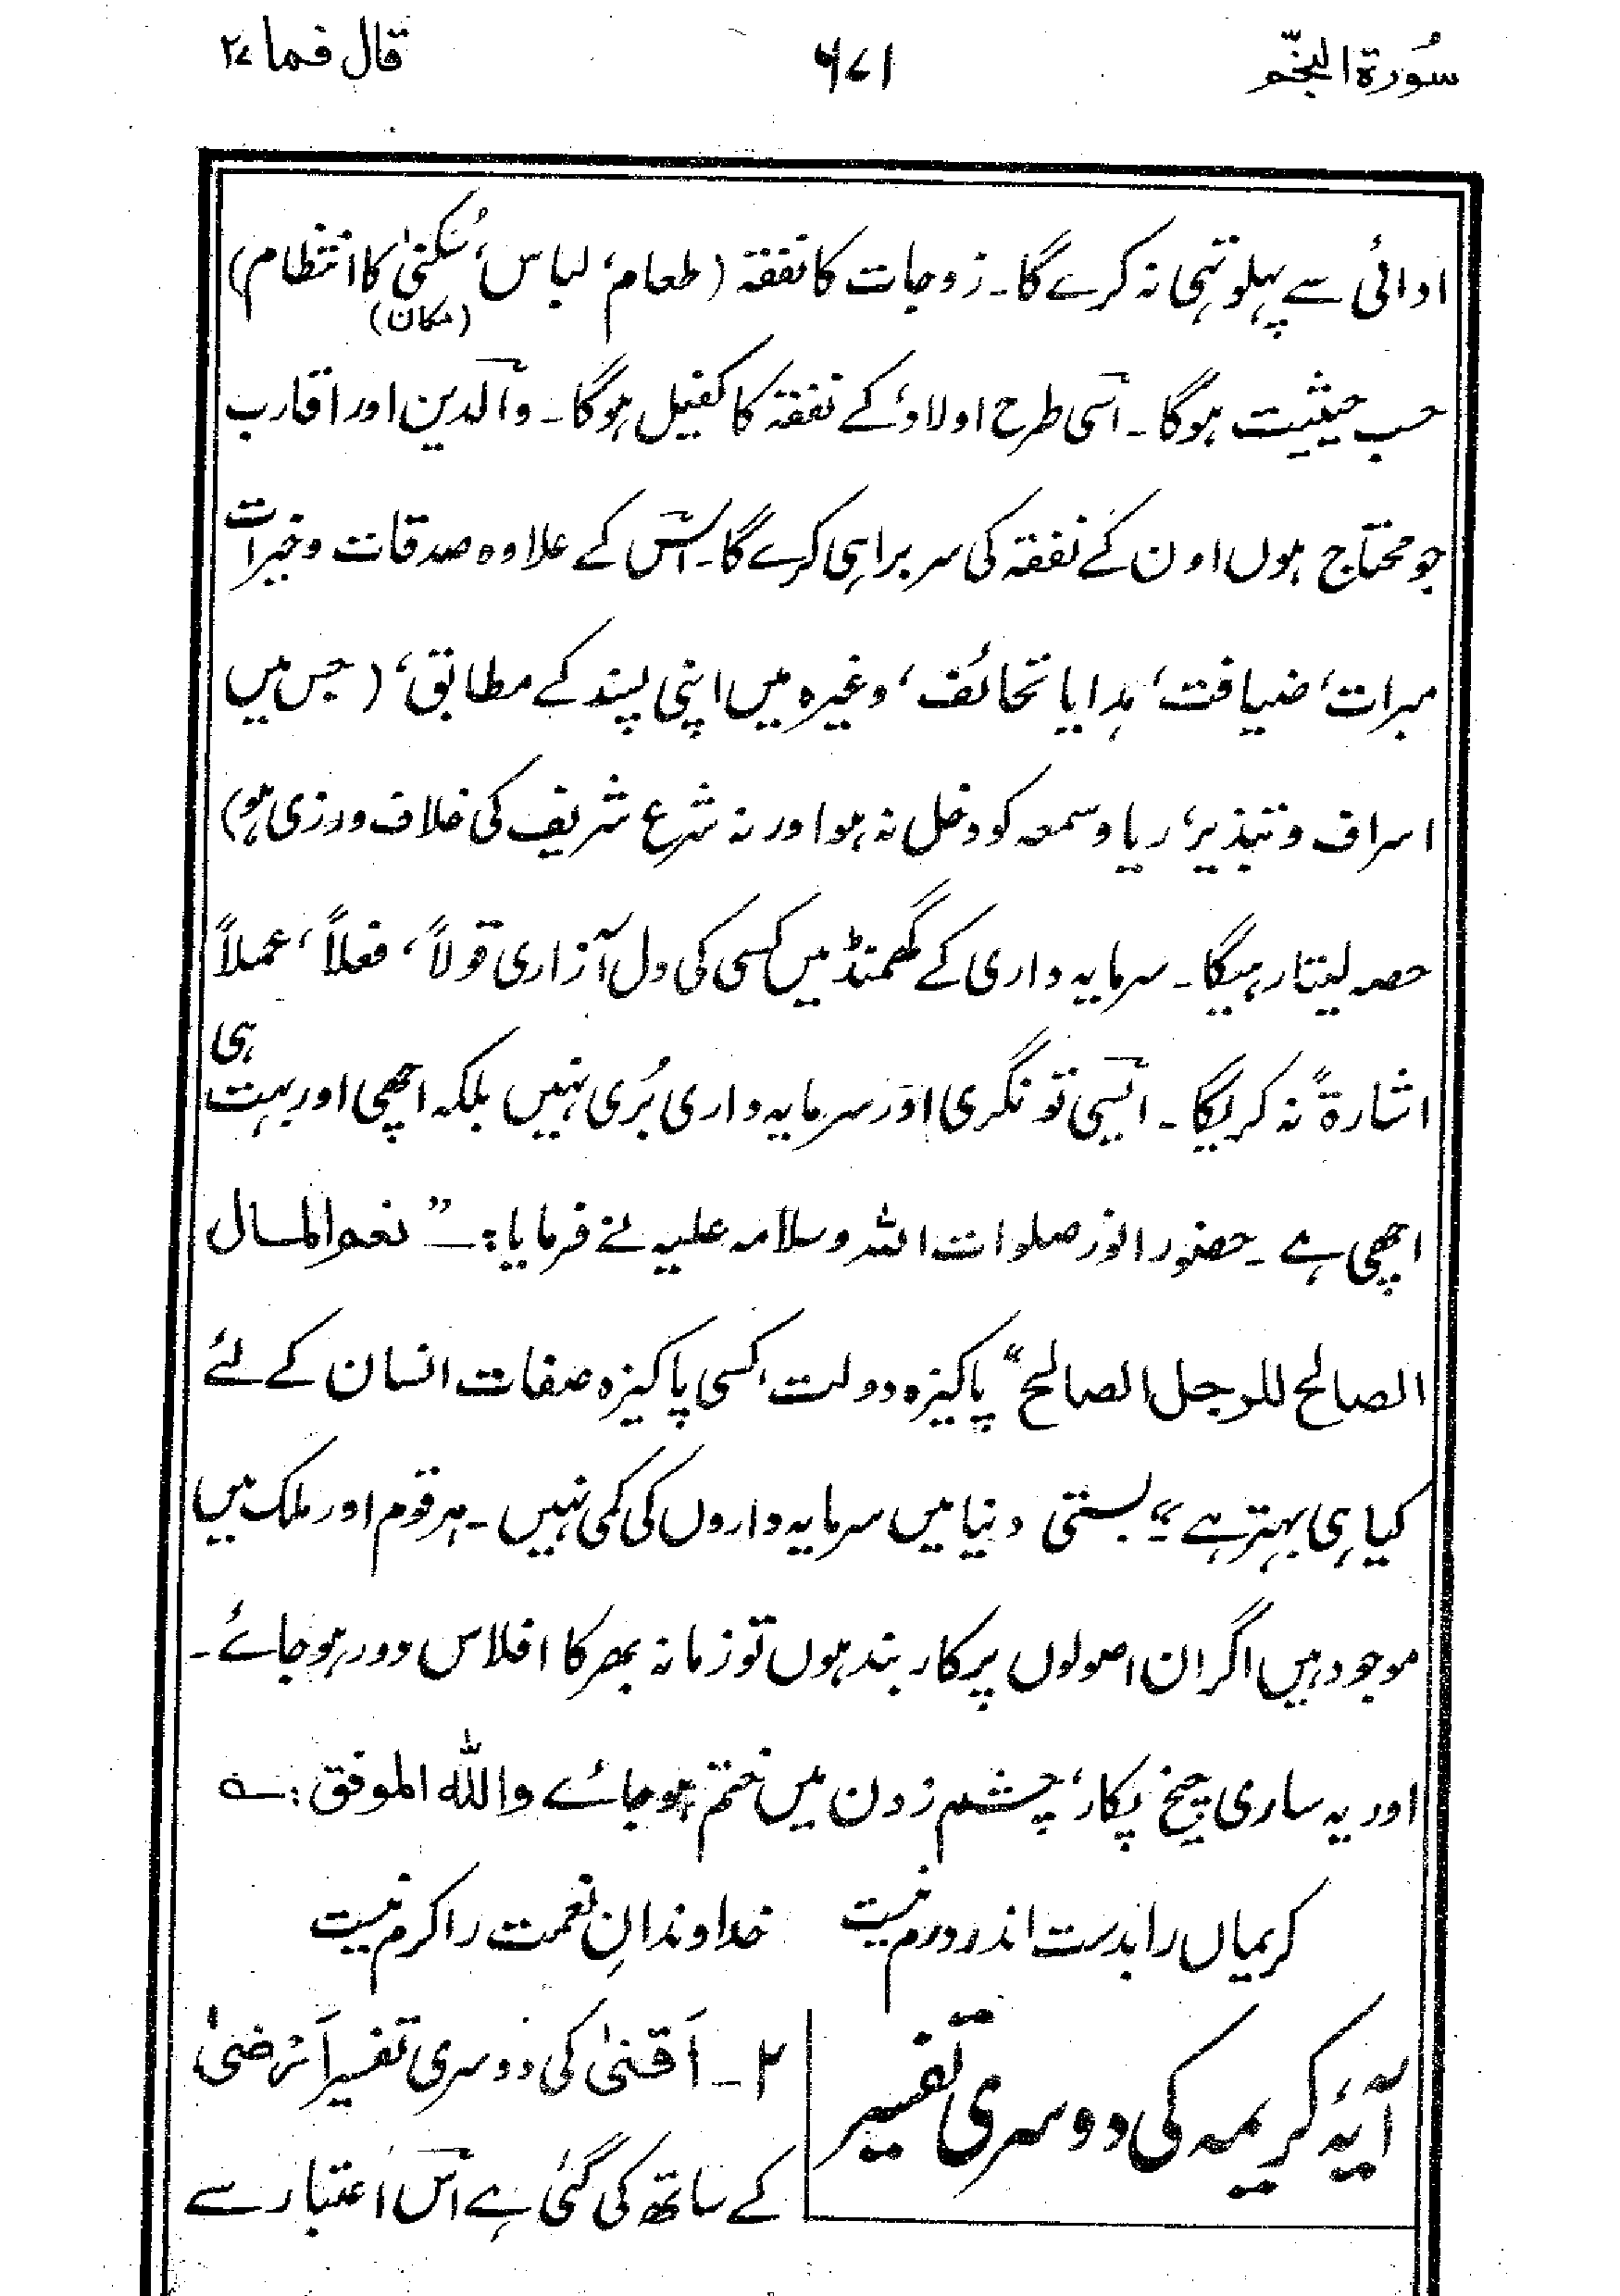 سُورة النجّم
۶۷۱
قال فما ۲۷
ادائی سے پہلو تہی نہ کرے گا۔ زوجات کا نفقہ (طعام، لباس، سُکنیٰ کا انتظام)
(مکان)
حسب حیثیت ہوگا۔ اسی طرح اولاد، کے نفقہ کا کفیل ہوگا۔ والدین اور اقارب
جو محتاج ہوں اون کے نفقہ کی سربراہی کرے گا۔ اس کے علاوہ صدقات و خیرات
مبرات، ضیافت، ہدایا تحائف، وغیرہ میں اپنی پسند کے مطابق، (جس میں
اسراف و تبذیر، ریا و سمعہ کو دخل نہ ہو اور نہ شرع شریف کی خلاف ورزی ہو)
حصہ لیتا رہیگا۔ سرمایہ داری کے گھمنڈ میں کسی کی دل آزاری قولاً، فعلاً، عملاً
اشارۃً نہ کریگا۔ ایسی تونگری اور سرمایہ داری بُری نہیں بلکہ اچھی اور بہت ہی
اچھی ہے۔ حضور انور صلوات اللہ وسلامہ علیہ نے فرمایا:۔ ”نعم المال
الصالح للرجل الصالح“ پاکیزہ دولت، کسی پاکیزہ صفات انسان کے لئے
کیا ہی بہتر ہے“؛ بستی دنیا میں سرمایہ داروں کی کمی نہیں۔ ہر قوم اور ملک میں
موجود ہیں اگر ان اصولوں پر کار بند ہوں تو زمانہ بھر کا افلاس دور ہو جائے۔
اور یہ ساری چیخ پکار، چشم زدن میں ختم ہو جائے واللہ الموفق:؎
کریماں را بدست اندر درم نیست خداوندانِ نعمت را کرم نیست
آیۂ کریمہ کی دوسری تفسیر
۲۔ اَقنیٰ کی دوسری تفسیر اَرْضیٰ
کے ساتھ کی گئی ہے اس اعتبار سے